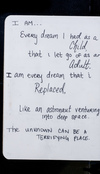 I AM...
Every dream I had as a
Child
that I let go of as an
Adult.
I am every dream that I
Replaced
Like an astronaut venturing
into deep space.
THE UNKNOWN CAN BE A
TERRIFYING PLACE.